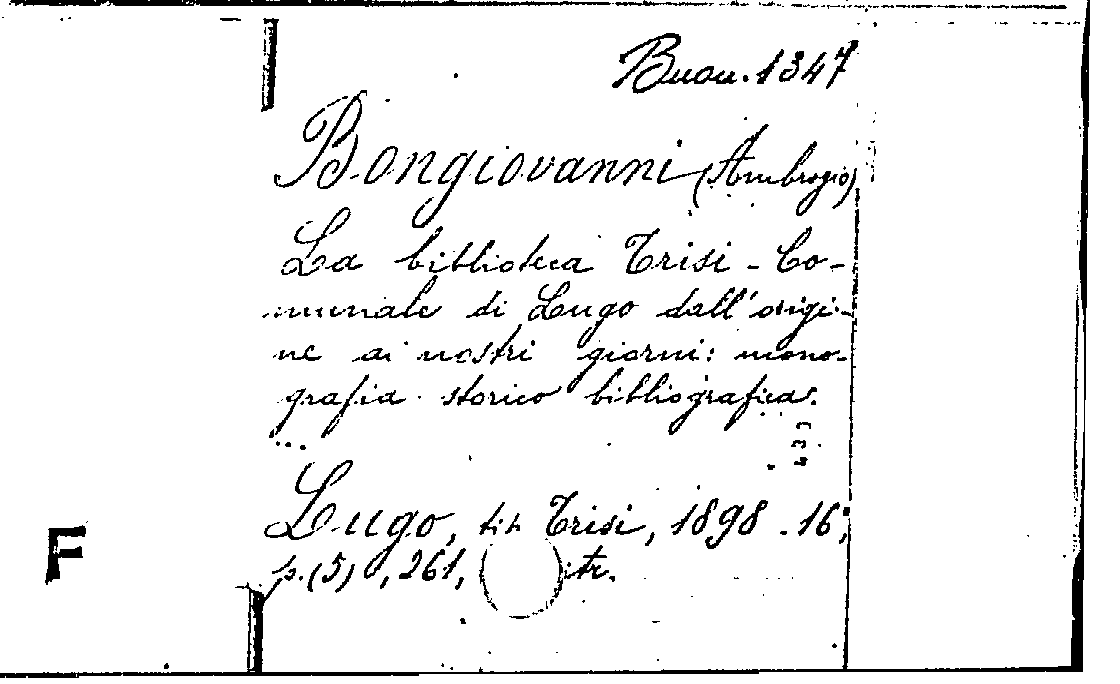 Buon. 1347
Bongiovanni (Ambrogio)
La biblioteca Trisi - Co-
munale di Lugo dall'origi-
ne ai nostri giorni: mono-
grafia storico bibliografica.
...
Lugo, tip. Trisi, 1898. 16°,
p. (5), 261,
F